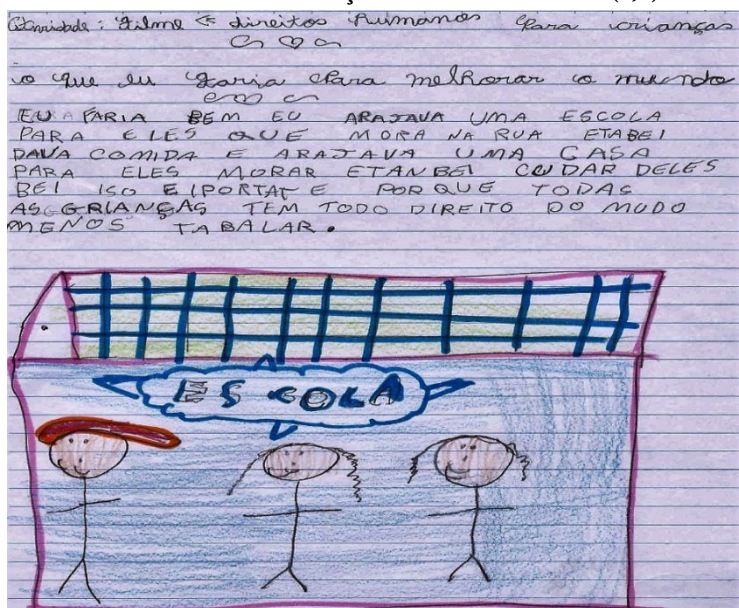 Atividade: Filme e direitos humanos para crianças
o que eu faria para melhorar o mundo
EU FARIA BEM EU ARAJAVA UMA ESCOLA
PARA ELES QUE MORA NA RUA ETABEI
DAVA COMIDA E ARAJAVA UMA CASA
PARA ELES MORAR ETANBEI CUDAR DELES
BEI ISO E IPORTATE PORQUE TODAS
AS GRIANÇAS TEM TODO DIREITO DO MUDO
MENOS TABALAR.
ESCOLA